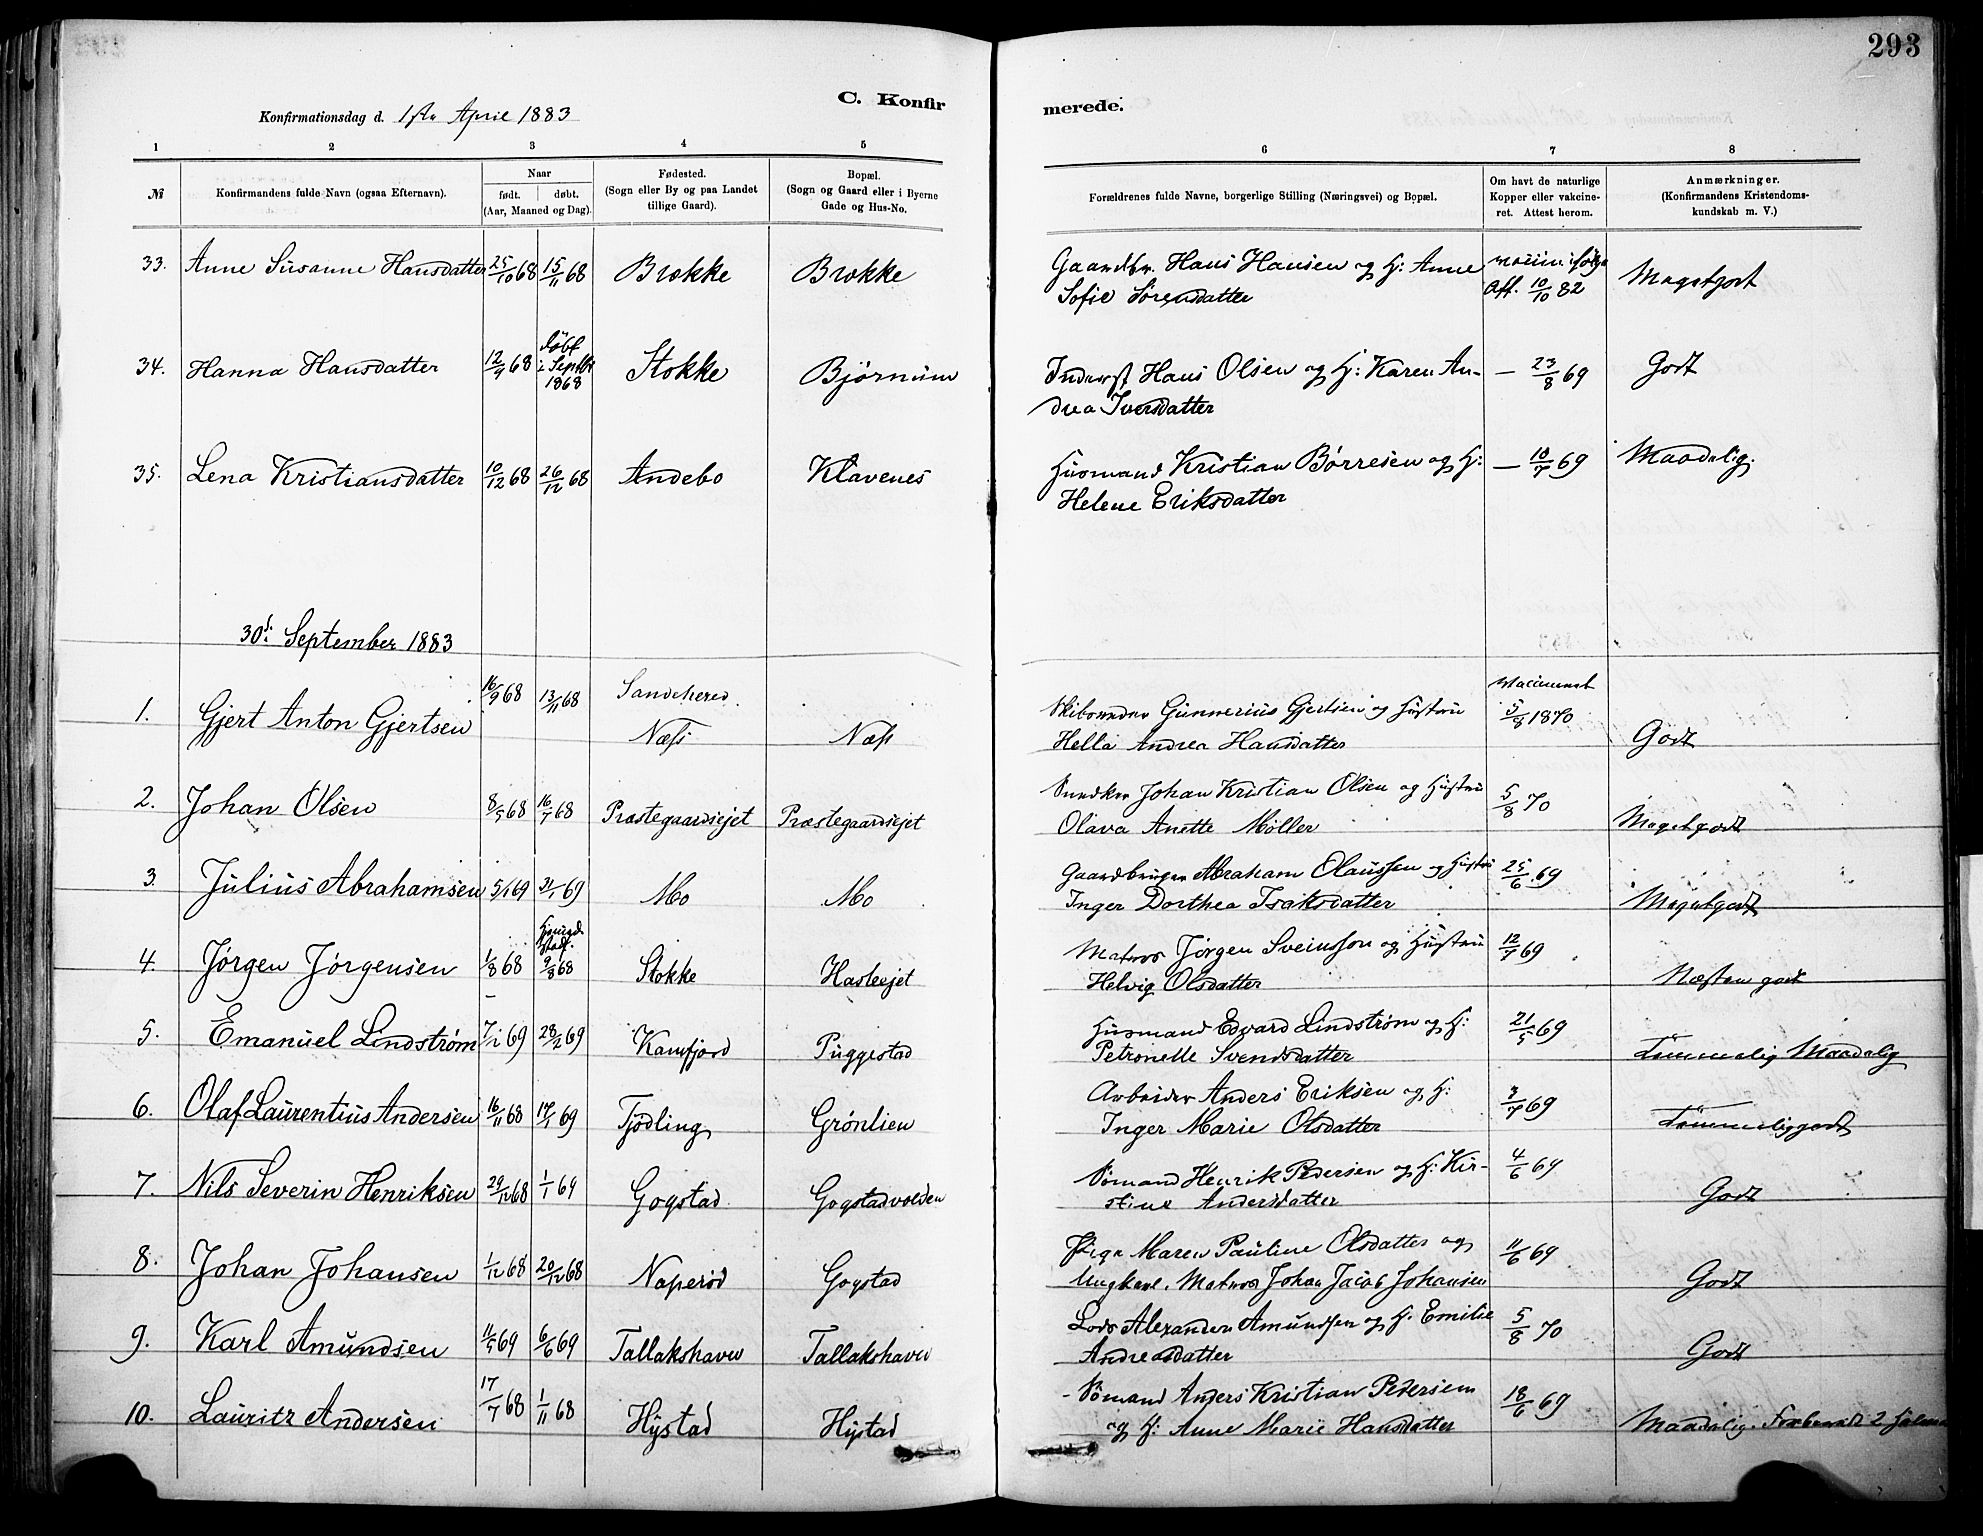 293
C. Konfirmerede.
Konfirmationsdag d. 1ste April 1883
1 2 3 4 5 6 7 8
№ Konfirmandens fulde Navn (ogsaa Efternavn). Naar født. døbt. (Aar, Maaned og Dag). Fødested. (Sogn eller By og paa Landet tillige Gaard). Bopæl. (Sogn og Gaard eller i Byerne Gade og Hus-No. Forældrenes fulde Navne, borgerlige Stilling (Næringsvei) og Bopæl. Om havt de naturlige Kopper eller vakcineret. Attest herom. Anmærkninger. (Konfirmandens Kristendomskundskab m. V.)
33. Anne Susanne Hansdatter 25/10 68 15/11 68 Brokke Brokke Gaardbr. Hans Hansen og H: Anne
Sofie Sørensdatter Att. 10/10 82 Megetgodt
34. Hanna Hansdatter 12/9 68 døbt i Septbr 1868 Stokke Bjørnum Inderst Hans Olsen og H: Karen An-
drea Iversdatter — 23/8 69 Godt
35. Lena Kristiansdatter 10/12 68 26/12 68 Andebo Klavenes Husmand Kristian Børresen og H:
Helene Eriksdatter — 10/7 69 Maadelig.
30d: September 1883
1. Gjert Anton Gjertsen 16/9 68 13/11 68 Sandeherred Næss Næss Skibsreder Gunnerius Gjertsen og Hustru
Hella Andrea Hansdatter Vaccineret 5/8 1870 Godt
2. Johan Olsen 8/5 68 16/7 68 Præstegaardsejet Præstegaardsejet Snedker Johan Kristian Olsen og Hustru
Olava Anette Møller 5/8 70 Megetgodt
3. Julius Abrahamsen 5/1 69 31/1 69 Mo Mo Gaardbruger Abraham Olaussen og Hustru
Inger Dorthea Isaksdatter 25/6 69 Megetgodt
4. Jørgen Jørgensen 1/8 68 Hjemmed. 9/8 68 Stokke Hasleejet Matros Jørgen Sveinsson og Hustru
Helvig Olsdatter 12/7 69 Næsten godt
5. Emanuel Lindstrøm 7/1 69 28/2 69 Kamfjord Puggestad Husmand Edvard Lindstrøm og H:
Petronelle Svendsdatter 21/5 69 Temmelig Maadelig
6. Olaf Laurentius Andersen 16/11 68 17/1 69 Tjødling Grønlien Arbeider Anders Eriksen og H:
Inger Marie Olsdatter 3/7 69 Temmelig godt
7. Nils Severin Henriksen 29/12 68 1/1 69 Gogstad Gogstadvolden Sømand Henrik Pedersen og H: Kir-
stine Andersdatter 4/6 69 Godt
8. Johan Johansen 1/12 68 20/12 68 Naperød Gogstad Pige Maren Pauline Olsdatter og
Ungkarl. Matros Johan Jacob Johansen 11/6 69 Godt
9. Karl Amundsen 11/5 69 6/6 69 Tallakshavn Tallakshavn Lods Alexander Amundsen og H. Emilie
Andreasdatter 5/8 70 Godt
10. Lauritz Andersen 17/7 68 1/11 68 Hystad Hystad Sømand Anders Kristian Pedersen
og H: Anne Marie Hansdatter 18/6 69 Maadelig. Forberedt 2